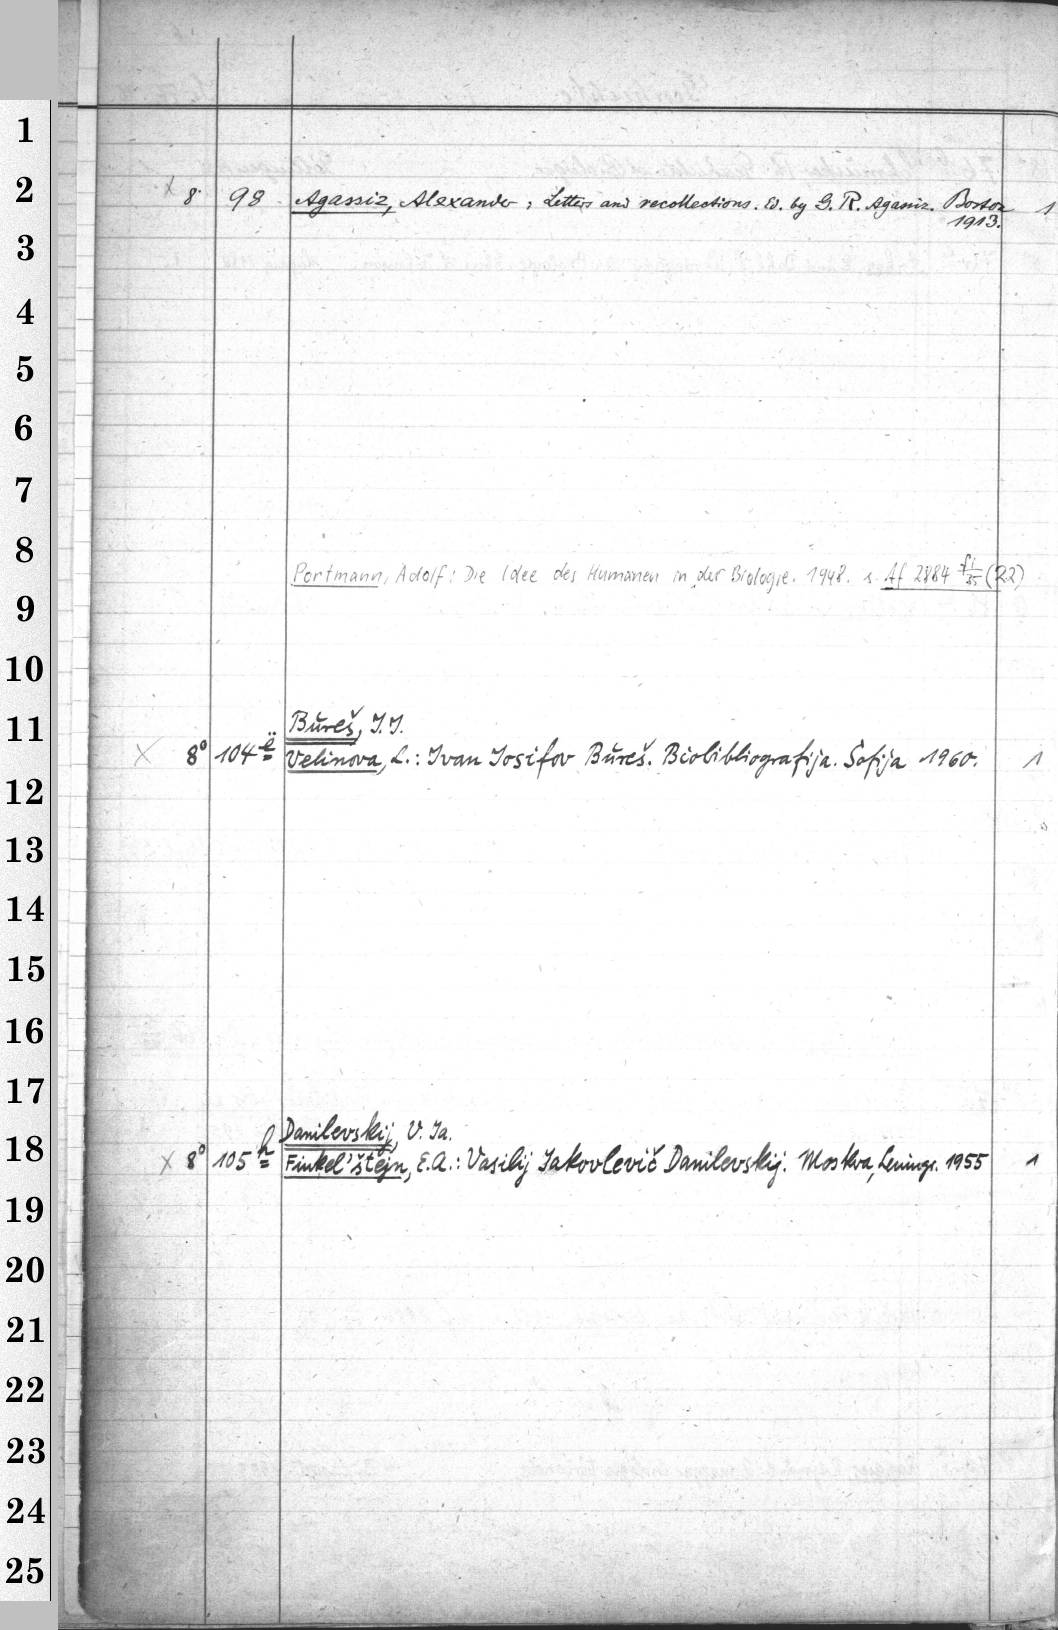 1
2
x 8° 98 Agassiz, Alexander; Letters and recollections. Ed. by G. R. Agassiz. Boston 1
1913.
3
4
5
6
7
8
Portmann, Adolf: Die Idee des Humanen in der Biologie. 1948. s. Af 2884 fi/35 (R2)
9
10
11
Bŭreš, I. I.
x 8° 104 ë Velinova, L.: Ivan Iosifov Bŭreš. Biobibliografija. Sofija 1960. 1
12
13
14
15
16
17
Danilevskij, V. Ja.
18
x 8° 105 h Finkel'štejn, E.A.: Vasilij Jakovlevič Danilevskij. Moskva, Leningr. 1955 1
19
20
21
22
23
24
25